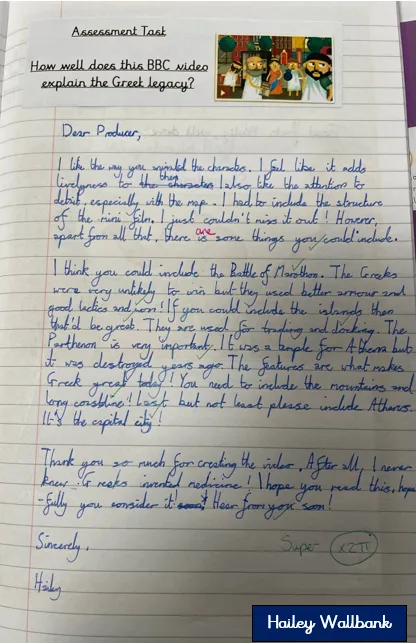 Assessment Task
How well does this BBC video
explain the Greek legacy?
Dear Producer,
I like the way you animated the characters. I feel like it adds
livelyness to the characters them I also like the attention to
detail, especially with the map. I had to include the structure
of the mini film. I just couldn't miss it out! However,
apart from all that, there is are some things you could include.
I think you could include the Battle of Marathon. The Greeks
were very unlikely to win but they used better armour and
good tactics and won! If you could include the islands then
that'd be great. They are used for trading and docking. The
Parthenon is very important. It was a temple for Athena but
it was destroyed years ago. The features are what makes
Greek great today! You need to include the mountains and
long coastline! Last but not least please include Athens.
It's the capital city!
Thank you so much for creating the video. After all, I never
knew Greeks invented medicine! I hope you read this, hope
-fully you consider it! Hear from you soon!
Sincerely,
Super x2TT
Hailey Wallbank